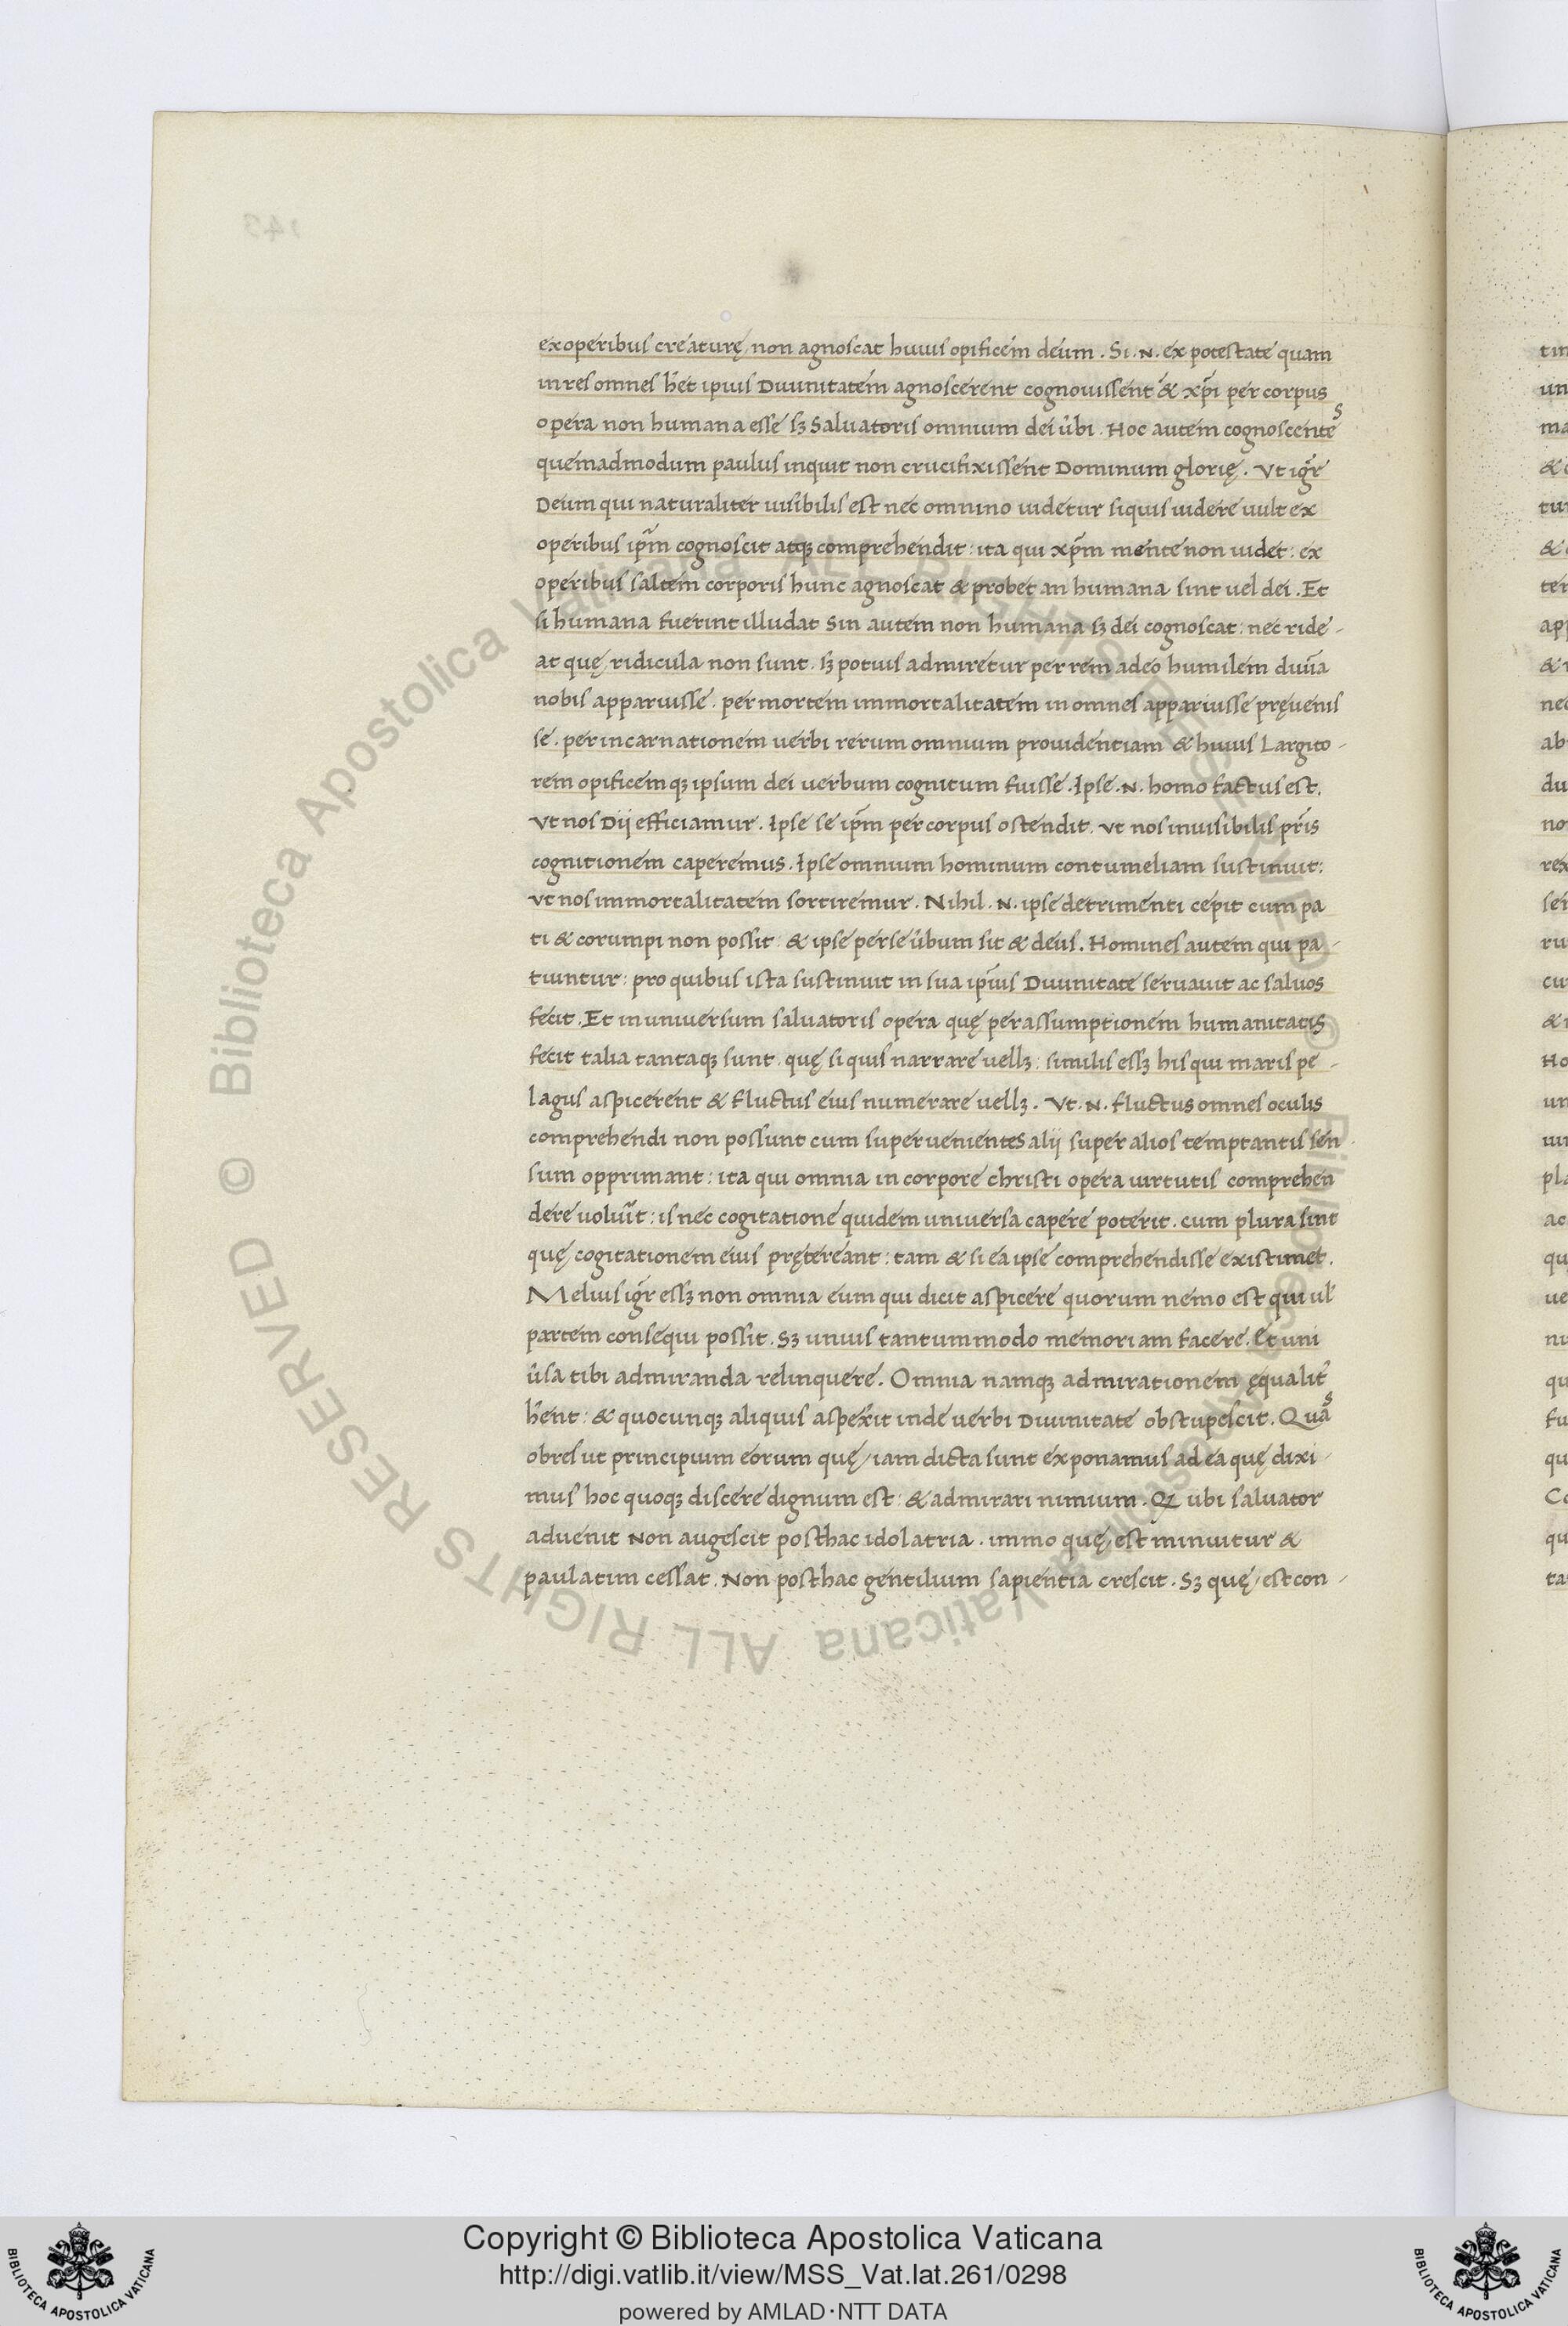 ex operibus creaturę, non agnoscat huius opificem deum. Si .N. ex potestate quam
in res omnes hēt ipius Diuinitatem agnoscerent cognouissent & xp̄i per corpus
opera non humana esse sꝫ Saluatoris omnium dei ûbi. Hoc autem cognoscentes
quemadmodum paulus inquit non crucifixissent Dominum glorię. Vt igr̄
Deum qui naturaliter uisibilis est nec omnino uidetur si quis uidere uult ex
operibus ip̄m cognoscit atqꝫ comprehendit: ita qui xp̄m mente non uidet: ex
operibus saltem corporis hunc agnoscat & probet an humana sint uel dei. Et
si humana fuerint illudat Sin autem non humana sꝫ dei cognoscat: nec ride-
at quę, ridicula non sunt. sꝫ potius admiretur per rem adeo humilem diuīa
nobis apparuisse. per mortem immortalitatem in omnes apparuisse pręuenis
se. per incarnationem uerbi rerum omnium prouidentiam & huius Largito-
rem opificemqꝫ ipsum dei uerbum cognitum fuisse. Ipse .N. homo factus est.
Vt nos Dij efficiamur. Ipse se ip̄m per corpus ostendit. Vt nos inuisibilis pr̄is
cognitionem caperemus. Ipse omnium hominum contumeliam sustinuit:
Vt nos immortalitatem sortiremur. Nihil .N. ipse detrimenti cepit cum pa
ti & corumpi non possit: & ipse per se ûbum sit & deus. Homines autem qui pa-
tiuntur: pro quibus ista sustinuit in sua ip̄ius Diuinitate seruauit ac saluos
fecit. Et in uniuersum saluatoris opera quę per assumptionem humanitatis
fecit talia tantaqꝫ sunt. quę si quis narrare uellꝫ: similis essꝫ his qui maris pe-
lagus aspicerent & fluctus eius numerare uellꝫ. Vt .N. fluctus omnes oculis
comprehendi non possunt cum superuenientes alij super alios temptantis sen
sum opprimant: ita qui omnia in corpore christi opera uirtutis comprehen
dere uolūit: is nec cogitatione quidem uniuersa capere poterit. cum plura sint
quę cogitationem eius prętereant: tam & si ea ipse comprehendisse existimet.
Melius igr̄ essꝫ non omnia eum qui dicit aspicere quorum nemo est qui ul̄
partem consequi possit. Sꝫ unius tantummodo memoriam facere. Et uni
ûsa tibi admiranda relinquere. Omnia namqꝫ admirationem ęqualit̄
hēnt: & quocunqꝫ aliquis aspexīt inde uerbi Diuinitate obstupescit. Quās
obres ut principium eorum quę, iam dicta sunt exponamus ad ea quę dixi-
mus hoc quoqꝫ discere dignum est: & admirari nimium. Qꝫ ubi saluator
aduenit Non augescit posthac idolatria. immo quę, est minuitur &
paulatim cessat. Non posthac gentilium sapientia crescit. Sꝫ quę, est con-
Copyright © Biblioteca Apostolica Vaticana
http://digi.vatlib.it/view/MSS_Vat.lat.261/0298
powered by AMLAD·NTT DATA
© Biblioteca Apostolica Vaticana ALL RIGHTS RESERVED
BIBLIOTECA APOSTOLICA VATICANA
BIBLIOTECA APOSTOLICA VATICANA